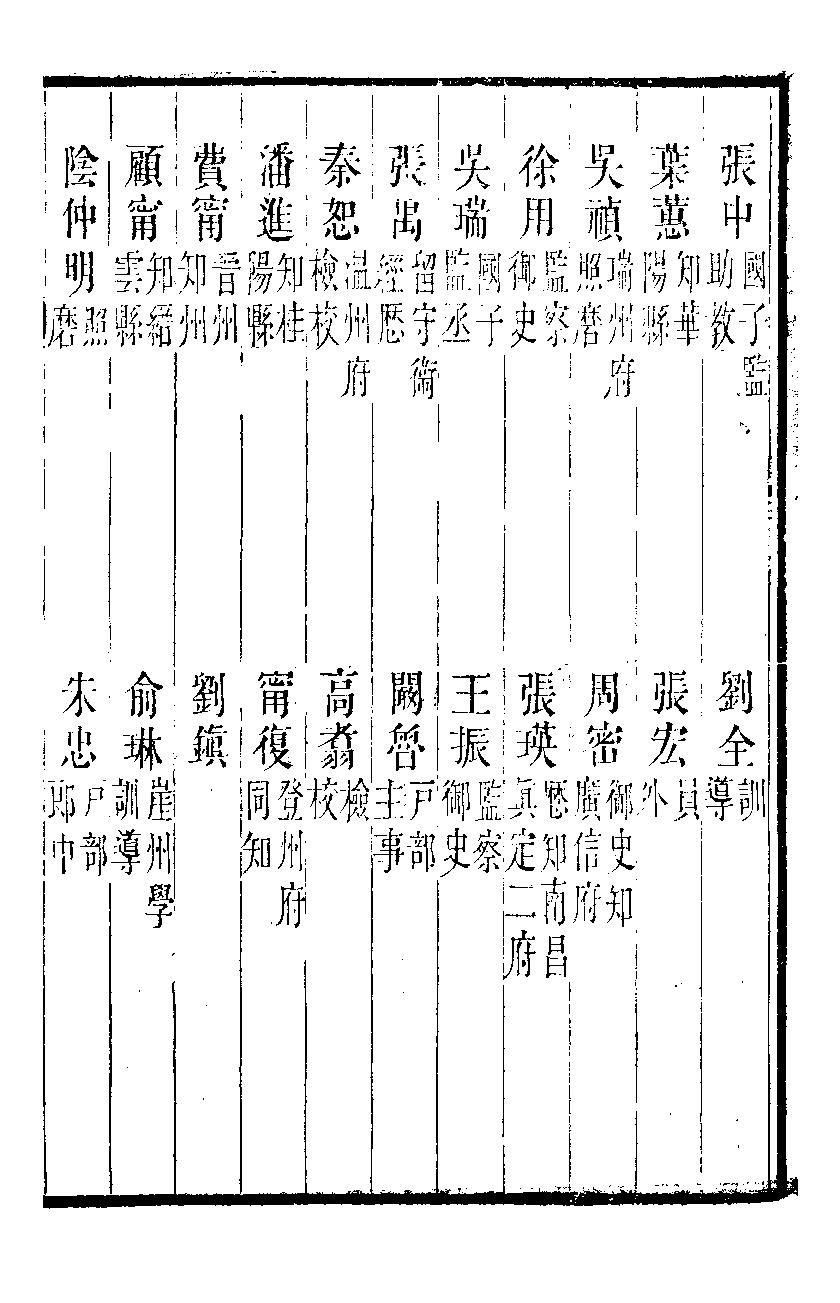 張中 國子監助教 劉全 訓導
葉蕙 知華陽縣 張宏 員外
吳禎 瑞州府照磨 周密 御史知廣信府
徐用 監察御史 張瑛 歷知南昌真定二府
吳瑞 國子監丞 王振 監察御史
張禺 留守衛經歷 闕譽 戸部主事
秦恕 温州府檢校 高翥 檢校
潘進 知桂陽縣 甯復 登州府同知
費甯 晋州知州 劉鎮
顧甯 知縉雲縣 俞琳 崖州學訓導
陰仲明 照磨 朱忠 戸部郎中